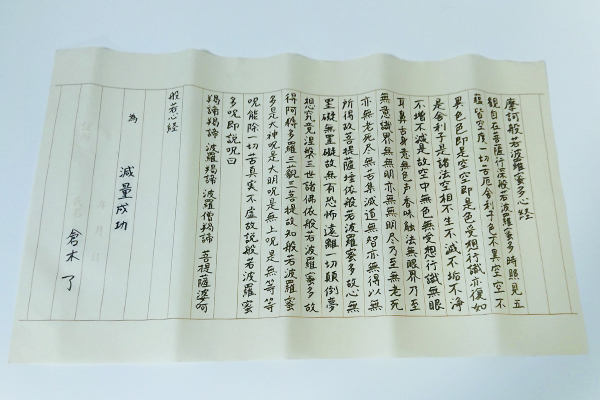 摩訶般若波羅蜜多心経
観自在菩薩行深般若波羅蜜多時照見五
蘊皆空度一切苦厄舎利子色不異空空不
異色色即是空空即是色受想行識亦復如
是舎利子是諸法空相不生不滅不垢不浄
不増不減是故空中無色無受想行識無眼
耳鼻舌身意無色声香味触法無眼界乃至
無意識界無無明亦無無明尽乃至無老死
亦無老死尽無苦集滅道無智亦無得以無
所得故菩提薩埵依般若波羅蜜多故心無
罣礙無罣礙故無有恐怖遠離一切顛倒夢
想究竟涅槃三世諸佛依般若波羅蜜多故
得阿耨多羅三藐三菩提故知般若波羅蜜
多是大神呪是大明呪是無上呪是無等等
呪能除一切苦真実不虚故説般若波羅蜜
多呪即説呪曰
羯諦羯諦 波羅羯諦 波羅僧羯諦 菩提薩婆訶
般若心経
為 減量成功
倉木 了